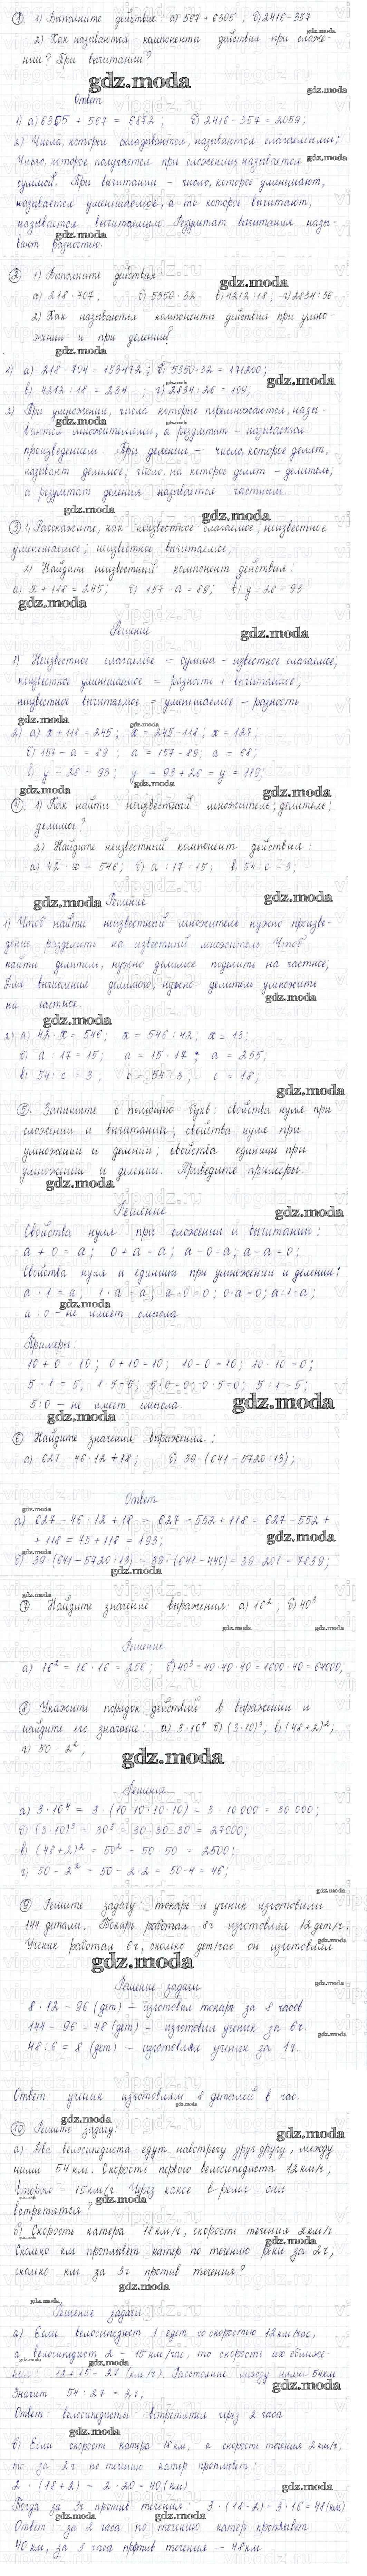 ① 1) Выполните действие: а) 567 + 6305; б) 2416 - 357
2) Как называются компоненты действия при сложе-
нии? При вычитании?
gdz.moda
Ответ
1) а) 6305 + 567 = 6872; б) 2416 - 357 = 2059;
2) Числа, которые складываются, называются слагаемыми;
Число, которое получается при сложении, называется
суммой. При вычитании - число, которое уменьшают,
называется уменьшаемое, а то которое вычитают,
называется вычитаемым. Результат вычитания назы-
вают разностью.
② 1) Выполните действия:
а) 218 · 707; б) 5350 · 32 в) 4212 : 18; г) 2834 : 26
2) Как называются компоненты действия при умно-
жении и при делении?
1) а) 218 · 704 = 153472; б) 5350 · 32 = 171200;
в) 4212 : 18 = 234; г) 2834 : 26 = 109;
2) При умножении, числа которые перемножаются, назы-
ваются множителями, а результат - называется
произведением. При делении - число, которое делят,
называют делимое; число, на которое делят - делитель;
а результат деления называется частным.
③ 1) Расскажите, как неизвестное слагаемое; неизвестное
уменьшаемое; неизвестное вычитаемое;
2) Найдите неизвестный компонент действия:
а) x + 118 = 245; б) 157 - a = 89; в) y - 26 = 93
Решение
1) Неизвестное слагаемое = сумма - известное слагаемое;
неизвестное уменьшаемое = разность + вычитаемое;
неизвестное вычитаемое = уменьшаемое - разность
2) а) x + 118 = 245; x = 245 - 118; x = 127;
б) 157 - a = 89; a = 157 - 89; a = 68;
в) y - 26 = 93; y = 93 + 26 = y = 119;
④. 1) Как найти неизвестный множитель; делитель;
делимое?
2) Найдите неизвестный компонент действия:
а) 42 · x = 546; б) a : 17 = 15; в) 54 : c = 3;
Решение
1) Чтоб найти неизвестный множитель нужно произве-
дение разделить на известный множитель. Чтоб
найти делитель, нужно делимое поделить на частное;
Для вычисления делимого, нужно делитель умножить
на частное.
2) а) 42 · x = 546; x = 546 : 42; x = 13;
б) a : 17 = 15; a = 15 · 17; a = 255;
в) 54 : c = 3; c = 54 : 3; c = 18;
⑤. Запишите с помощью букв: свойства нуля при
сложении и вычитании; свойства нуля при
умножении и делении; свойства единицы при
умножении и делении. Приведите примеры.
Решение
Свойства нуля при сложении и вычитании:
a + 0 = a; 0 + a = a; a - 0 = a; a - a = 0;
Свойства нуля и единицы при умножении и делении:
a · 1 = a; 1 · a = a; a · 0 = 0; 0 · a = 0; a : 1 = a;
a : 0 - не имеет смысла
Примеры:
10 + 0 = 10; 0 + 10 = 10; 10 - 0 = 10; 10 - 10 = 0;
5 · 1 = 5; 1 · 5 = 5; 5 · 0 = 0; 0 · 5 = 0; 5 : 1 = 5;
5 : 0 - не имеет смысла.
⑥ Найдите значения выражения:
а) 627 - 46 · 12 + 18; б) 39 · (641 - 5720 : 13);
Ответ
а) 627 - 46 · 12 + 18 = 627 - 552 + 118 = 627 - 552 +
+ 118 = 75 + 118 = 193;
б) 39 · (641 - 5720 : 13) = 39 · (641 - 440) = 39 · 201 = 7839;
⑦ Найдите значение выражения: а) 16²; б) 40³
Решение
а) 16² = 16 · 16 = 256; б) 40³ = 40 · 40 · 40 = 1600 · 40 = 64000;
⑧ Укажите порядок действий в выражении и
найдите его значение: а) 3 · 10⁴ б) (3 · 10)³; в) (48 + 2)²;
г) 50 - 2²;
Решение
а) 3 · 10⁴ = 3 · (10 · 10 · 10 · 10) = 3 · 10 000 = 30 000;
б) (3 · 10)³ = 30³ = 30 · 30 · 30 = 27000;
в) (48 + 2)² = 50² = 50 · 50 = 2500;
г) 50 - 2² = 50 - 2 · 2 = 50 - 4 = 46;
⑨ Решите задачу: токарь и ученик изготовили
144 детали. Токарь работал 8ч изготовляя 12 дет/ч.
Ученик работал 6ч, сколько дет/час он изготовлял
Решение задачи
8 · 12 = 96 (дет) - изготовил токарь за 8 часов
144 - 96 = 48 (дет) - изготовил ученик за 6ч.
48 : 6 = 8 (дет) - изготовлял ученик за 1ч.
Ответ: ученик изготовлял 8 деталей в час.
⑩ Решите задачу:
а) Два велосипедиста едут навстречу друг другу, между
ними 54 км. Скорость первого велосипедиста 12 км/ч;
второго - 15 км/ч. Через какое время они
встретятся?
б) Скорость катера 18 км/ч, скорость течения 2 км/ч
Сколько км проплывет катер по течению реки за 2ч;
сколько км за 3ч против течения?
Решение задачи
а) Если велосипедист 1 едет со скоростью 12 км/час,
а велосипедист 2 - 15 км/час, то скорость их сближе-
ния: 12 + 15 = 27 (км/ч). Расстояние между ними 54 км
Значит 54 : 27 = 2ч,
Ответ велосипедисты встретятся через 2 часа
б) Если скорость катера 18 км, а скорость течения 2 км/ч,
то за 2ч по течению катер проплывет:
2 · (18 + 2) = 2 · 20 = 40 (км)
Тогда за 3ч против течения 3 · (18 - 2) = 3 · 16 = 48 (км)
Ответ за 2 часа по течению катер проплывет
40 км, за 3 часа против течения - 48 км